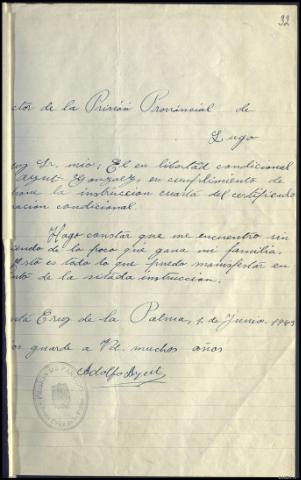 32
ctor de la Prisión Provincial de
Lugo
Sr. mio; El en libertad condicional
Ayut Gonzalez, en cumplimiento de
la instruccion cuarta del certificado
ración condicional.
Hago constar que me encuentro sin
endo de lo poco que gana mi familia.
Esto es todo lo que puedo manifestar en
nto de la sitada instruccion.
nta Cruz de la Palma, 1 de Junio 194
os guarde a Vd. muchos años
Adolfo Ayut